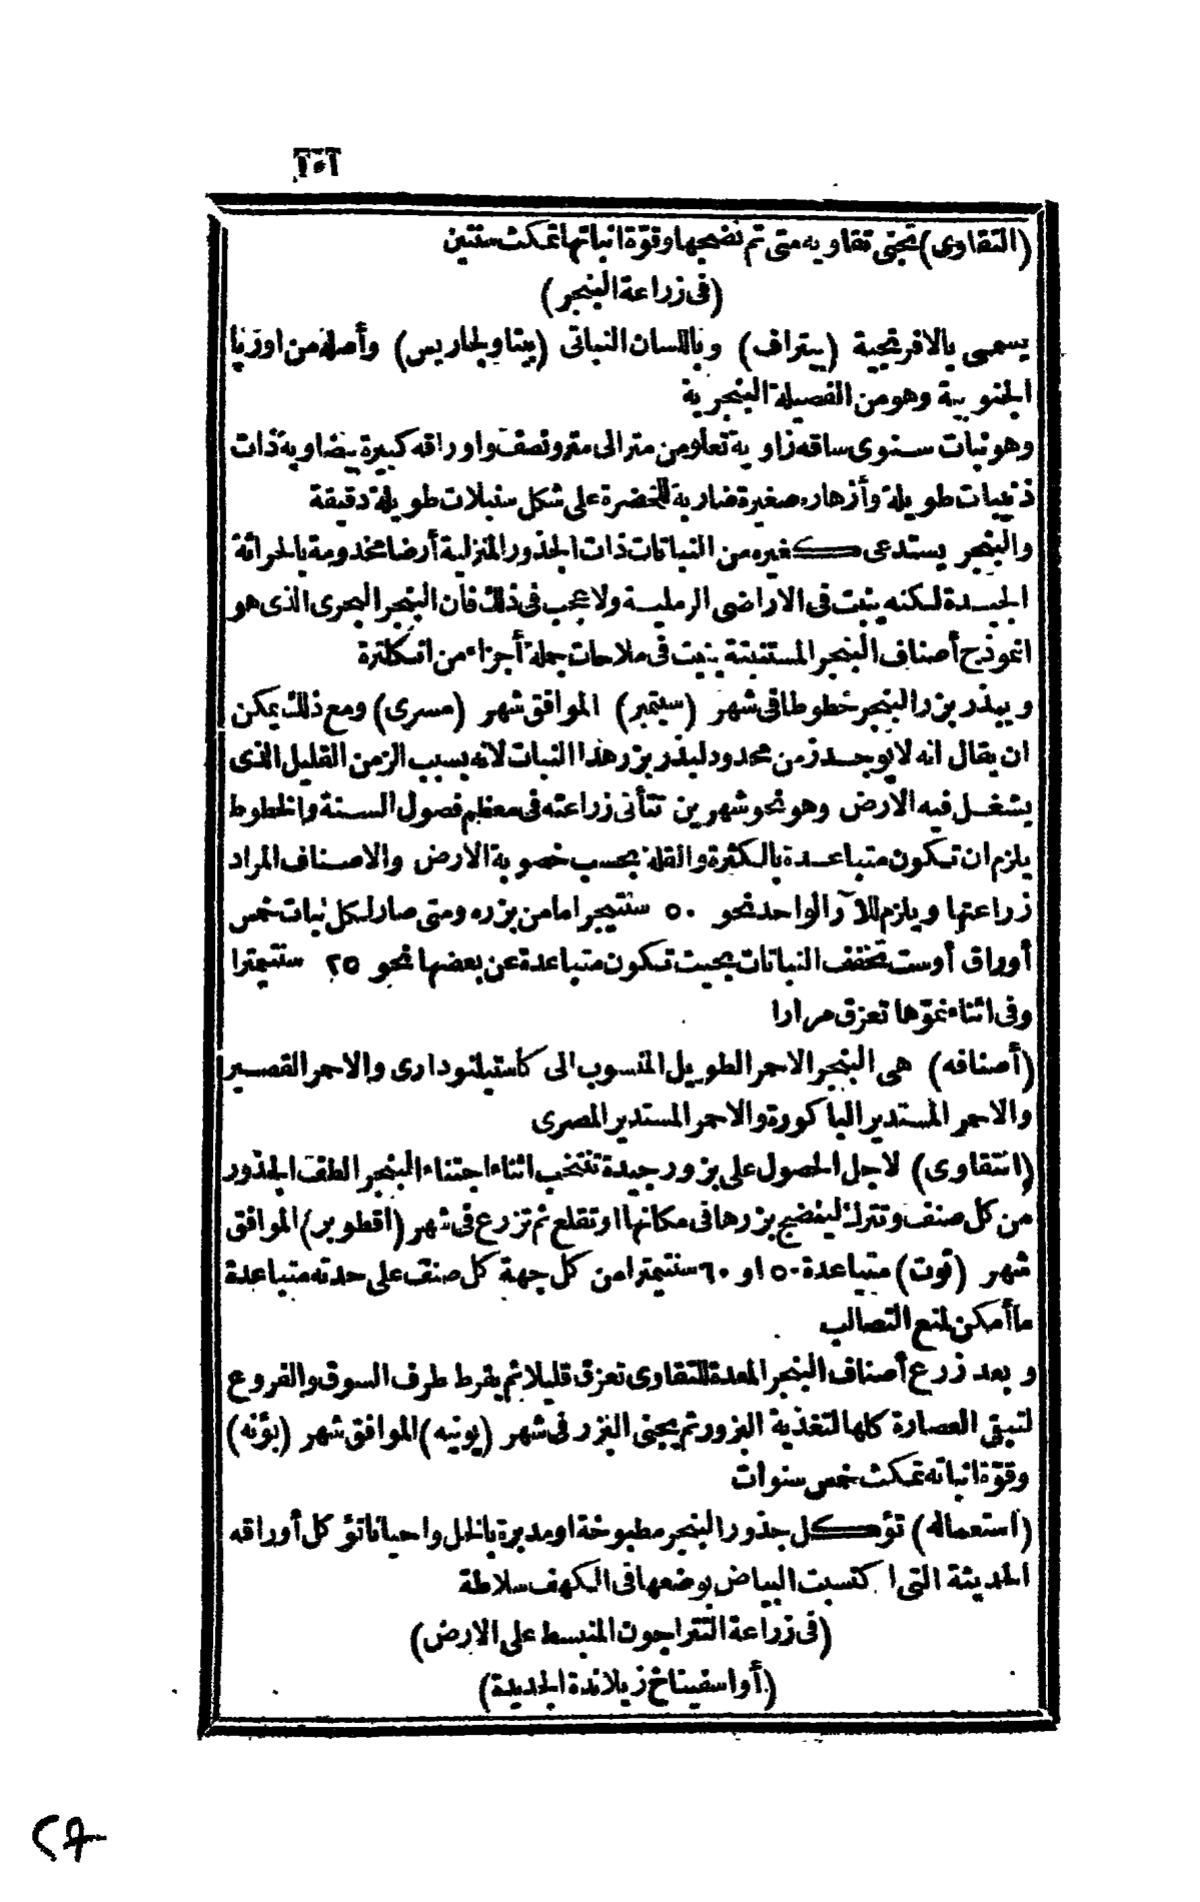 ١٥٢
(التقاوى) تجنى تقاويه متى تم نضجها وقوّة انباتها تمكث سنتين
(فى زراعة البنجر)
يسمى بالافرنجية (بيتراف) وباللسان النباتى (بيتا ولجاريس) وأصله من اوروپا
الجنوبية وهو من الفصيلة البنجرية
وهو نبات سنوى ساقه زاوية تعلو من متر الى متر ونصف واوراقه كبيرة بيضاوية ذات
ذنيبات طويلة وأزهاره صغيرة ضاربة للخضرة على شكل سنبلات طويلة دقيقة
والبنجر يستدعى كغيره من النباتات ذات الجذور المنزلية أرضا مخدومة بالحراثة
الجيدة لكنه ينبت فى الاراضى الرملية ولا عجب فى ذلك فان البنجر البحرى الذى هو
انموذج أصناف البنجر المستنبتة ينبت فى ملاحات جملة أجزاء من انكلترة
ويبذر بزر البنجر خطوطا فى شهر (سبتمبر) الموافق شهر (مسرى) ومع ذلك يمكن
ان يقال انه لا يوجد زمن محدود لبذر بزر هذا النبات لانه بسبب الزمن القليل الذى
يشغل فيه الارض وهو نحو شهرين تتأتى زراعته فى معظم فصول السنة والخطوط
يلزم ان تكون متباعدة بالكثرة والقلة بحسب خصوبة الارض والاصناف المراد
زراعتها ويلزم للآر الواحد نحو ٥٠ سنتيجراما من بزره ومتى صار لكل نبات خمس
أوراق أوست تخفف النباتات بحيث تكون متباعدة عن بعضها نحو ٢٥ سنتيمترا
وفى اثناء نموّها تعزق مرارا
(أصنافه) هى البنجر الاحمر الطويل المنسوب الى كاستيلنودارى والاحمر القصير
والاحمر المستدير الباكورة والاحمر المستدير المصرى
(التقاوى) لاجل الحصول على بزور جيدة تنتخب اثناء اجتناء البنجر الطف الجذور
من كل صنف وتترك لينضج بزرها فى مكانها او تقلع ثم تزرع فى شهر (اقطوبر) الموافق
شهر (توت) متباعدة ٥٠ او ٦٠ سنتيمترا من كل جهة كل صنف على حدته متباعدة
ما أمكن لمنع التصالب
وبعد زرع أصناف البنجر المعدة للتقاوى تعزق قليلا ثم يقرط طرف السوق والفروع
لتبقى العصارة كلها لتغذية البزور ثم يجنى البزر فى شهر (يونيه) الموافق شهر (بؤنه)
وقوّة انباته تمكث خمس سنوات
(استعماله) تؤكل جذور البنجر مطبوخة او مدبرة بالخل واحيانا تؤكل أوراقه
الحديثة التى اكتسبت البياض بوضعها فى الكهف سلاطة
(فى زراعة التتراجون المنبسط على الارض)
(أو اسفيناخ زيلاندة الجديدة)